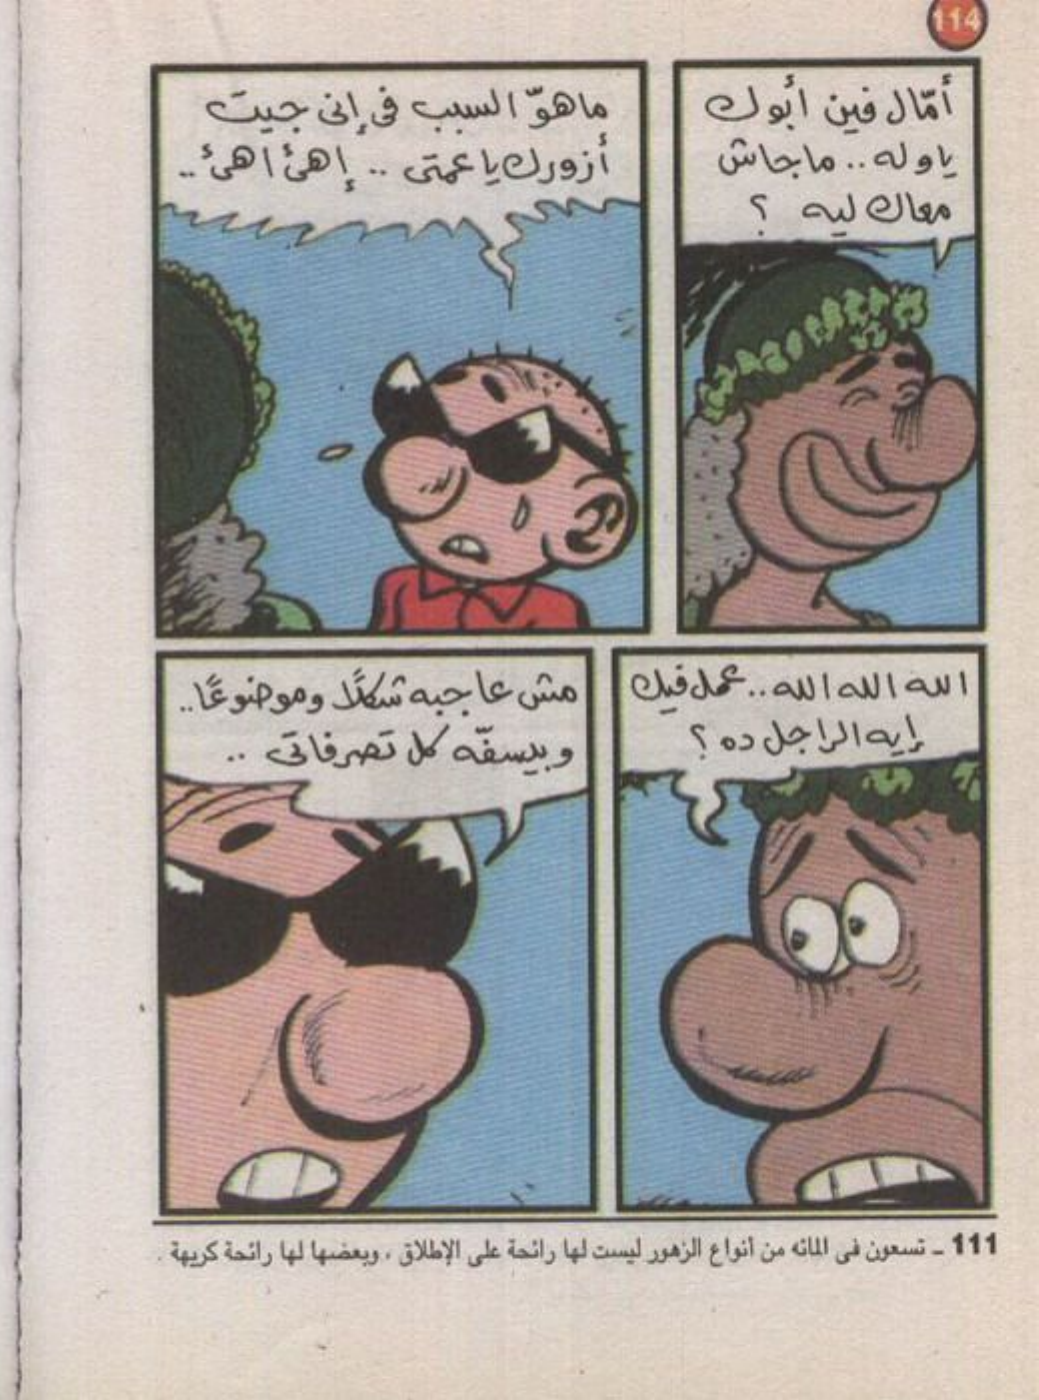 114
أمّال فين أبوك
ياوله.. ماجاش
معاك ليه ؟
ماهوّ السبب فى إنى جيت
أزورك يا عمتى .. إهئ اهئ..
الله الله الله.. عمل فيك
إيه الراجل ده ؟
مش عاجبه شكلًا وموضوعًا..
وبيسفّه كل تصرفاتى ..
111 ـ تسعون فى المائه من أنواع الزهور ليست لها رائحة على الإطلاق ، وبعضها لها رائحة كريهة .